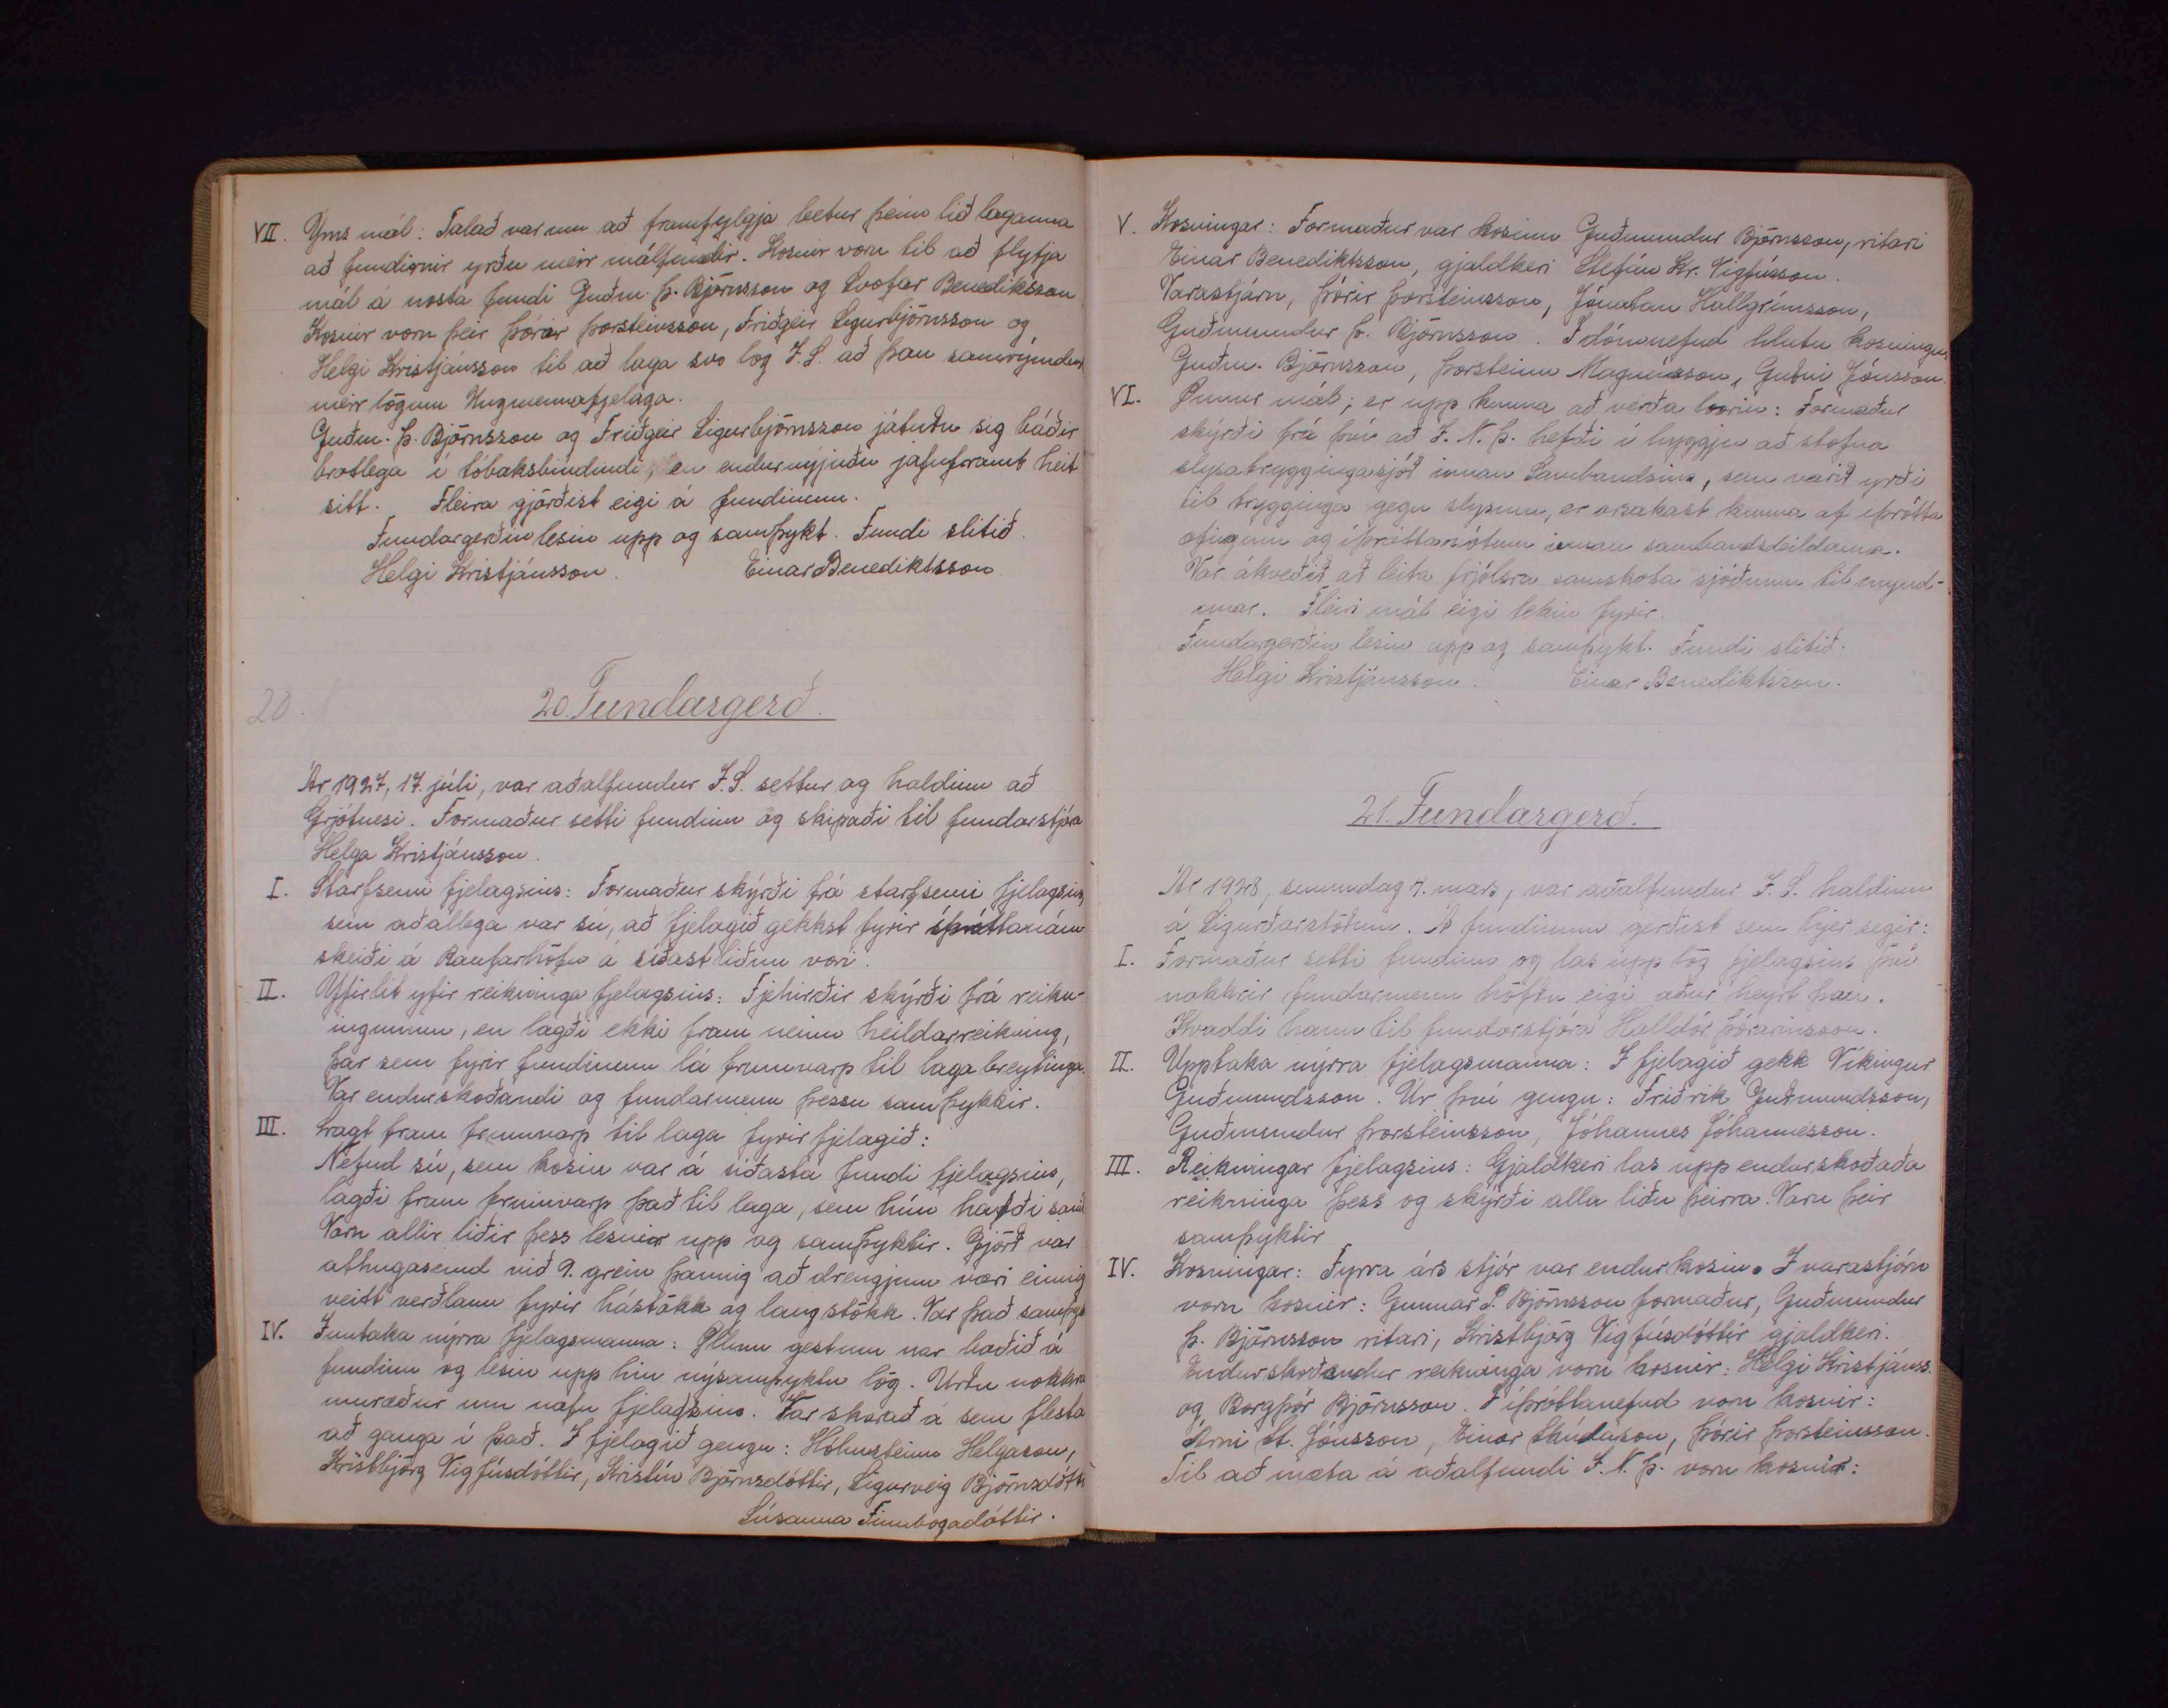 VII. Yms mál: Talað var um að framfylgja betur þeim lið laganna
að fundirnir yrðu meir málfundir. Kosnir voru til að flytja
mál á næsta fundi Guðm. Þ. Björnsson og Benediktsson
Kosnir voru þeir Þórir Þorsteinsson, Friðgeir Sigurbjörnsson og
Helgi Kristjánsson til að laga svo lög Í.S. að þau samrýmdust
meir lögum Ungmennafjelaga.
Guðm. Þ. Björnsson og Friðgeir Sigurbjörnsson játuðu sig báðir
brotlega í tóbaksbindindi, en endurnýjuðu jafnframt heit
sitt. Fleira gjörðist eigi á fundinum.
Fundargerðin lesin upp og samþykt. Fundi slitið.
Helgi Kristjánsson. Einar Benediktsson
20.
20. Fundargerð.
Ár 1927, 17. júli, var aðalfundur Í.S. settur og haldinn að
Grjótnesi. Formaður setti fundinn og skipaði til fundarstjóra
Helga Kristjánsson.
I. Starfsemi fjelagsins: Formaður skýrði frá starfsemi fjelagsins,
sem aðallega var sú, að fjelagið gekkst fyrir íþróttanám
skeiði á Raufarhöfn á síðastliðnu vori.
II. Yfirlit yfir reikninga fjelagsins: Fjehirðir skýrði frá reikn-
ingunum, en lagði ekki fram neinn heildarreikning,
þar sem fyrir fundinum lá frumvarp til lagabreytinga.
Var endurskoðandi og fundarmenn þessu samþykkir.
III. Lagt fram frumvarp til laga fyrir fjelagið:
Nefnd sú, sem kosin var á síðasta fundi fjelagsins,
lagði fram frumvarp það til laga, sem hún hafði samið
Voru allir liðir þess lesnir upp og samþyktir. Gjörð var
athugasemd við 9. grein þannig að drengjum væri einnig
veitt verðlaun fyrir hástökk og langstökk. Var það samþykt
IV. Inntaka nýrra fjelagsmanna: Öllum gestum var boðið á
fundinn og lesin upp hin nýsamþyktu lög. Urðu nokkrar
umræður um nafn fjelagsins. Var skorað á sem flesta
að ganga í það. Í fjelagið gengu: Hólmsteinn Helgason,
Kristbjörg Vigfúsdóttir, Kristín Björnsdóttir, Sigurveig Björnsdóttir
Súsanna Finnbogadóttir.
V. Kosningar: Formaður var kosinn Guðmundur Björnsson, ritari
Einar Benediktsson, gjaldkeri Stefán Kr. Vigfússon.
Varastjórn, Þórir Þorsteinsson, Jónatan Hallgrímsson,
Guðmundur Þ. Björnsson. Í dómnefnd hlutu kosningu
Guðm. Björnsson, Þorsteinn Magnússon, Guðni Jónsson.
VI. Önnur mál; er upp kunna að verða borin: Formaður
skýrði frá því að Í.N.Þ. hefði í hyggju að stofna
slysatryggingasjóð innan Sambandsins, sem varið yrði
til trygginga gegn slysum, er orsakast kunna af íþrótta
æfingum og íþróttamótum innan sambandsdeildanna.
Var ákveðið að leita frjálsra samskota sjóðnum til mynd-
unar. Fleiri mál eigi tekin fyrir.
Fundargerðin lesin upp og samþykt. Fundi slitið.
Helgi Kristjánsson. Einar Benediktsson.
21. Fundargerð.
Ár 1928, sunnudag 4. mars, var aðalfundur Í.S. haldinn
á Sigurðarstöðum. Á fundinum gerðist sem hjer segir:
I. Formaður setti fundinn og las upp lög fjelagsins því
nokkrir fundarmenn höfðu eigi áður heyrt þau.
Kvaddi hann til fundarstjóra Halldór Þórarinsson.
II. Upptaka nýrra fjelagsmanna: Í fjelagið gekk Víkingur
Guðmundsson. Úr því gengu: Friðrik Guðmundsson,
Guðmundur Þorsteinsson, Jóhannes Jóhannesson.
III. Reikningar fjelagsins: Gjaldkeri las upp endurskoðaða
reikninga þess og skýrði alla liðu þeirra. Voru þeir
samþyktir
IV. Kosningar: Fyrra árs stjór var endurkosin. Í varastjórn
voru kosnir: Gunnar P. Björnsson formaður, Guðmundur
Þ. Björnsson ritari, Kristbjörg Vigfúsdóttir gjaldkeri.
Endurskoðendur reikninga voru kosnir: Helgi Kristjánss.
og Borgþór Björnsson. Í íþróttanefnd voru kosnir:
Árni St. Jónsson, Einar Skúlason, Þórir Þorsteinsson.
Til að mæta á aðalfundi Í.N.Þ. voru kosnir: